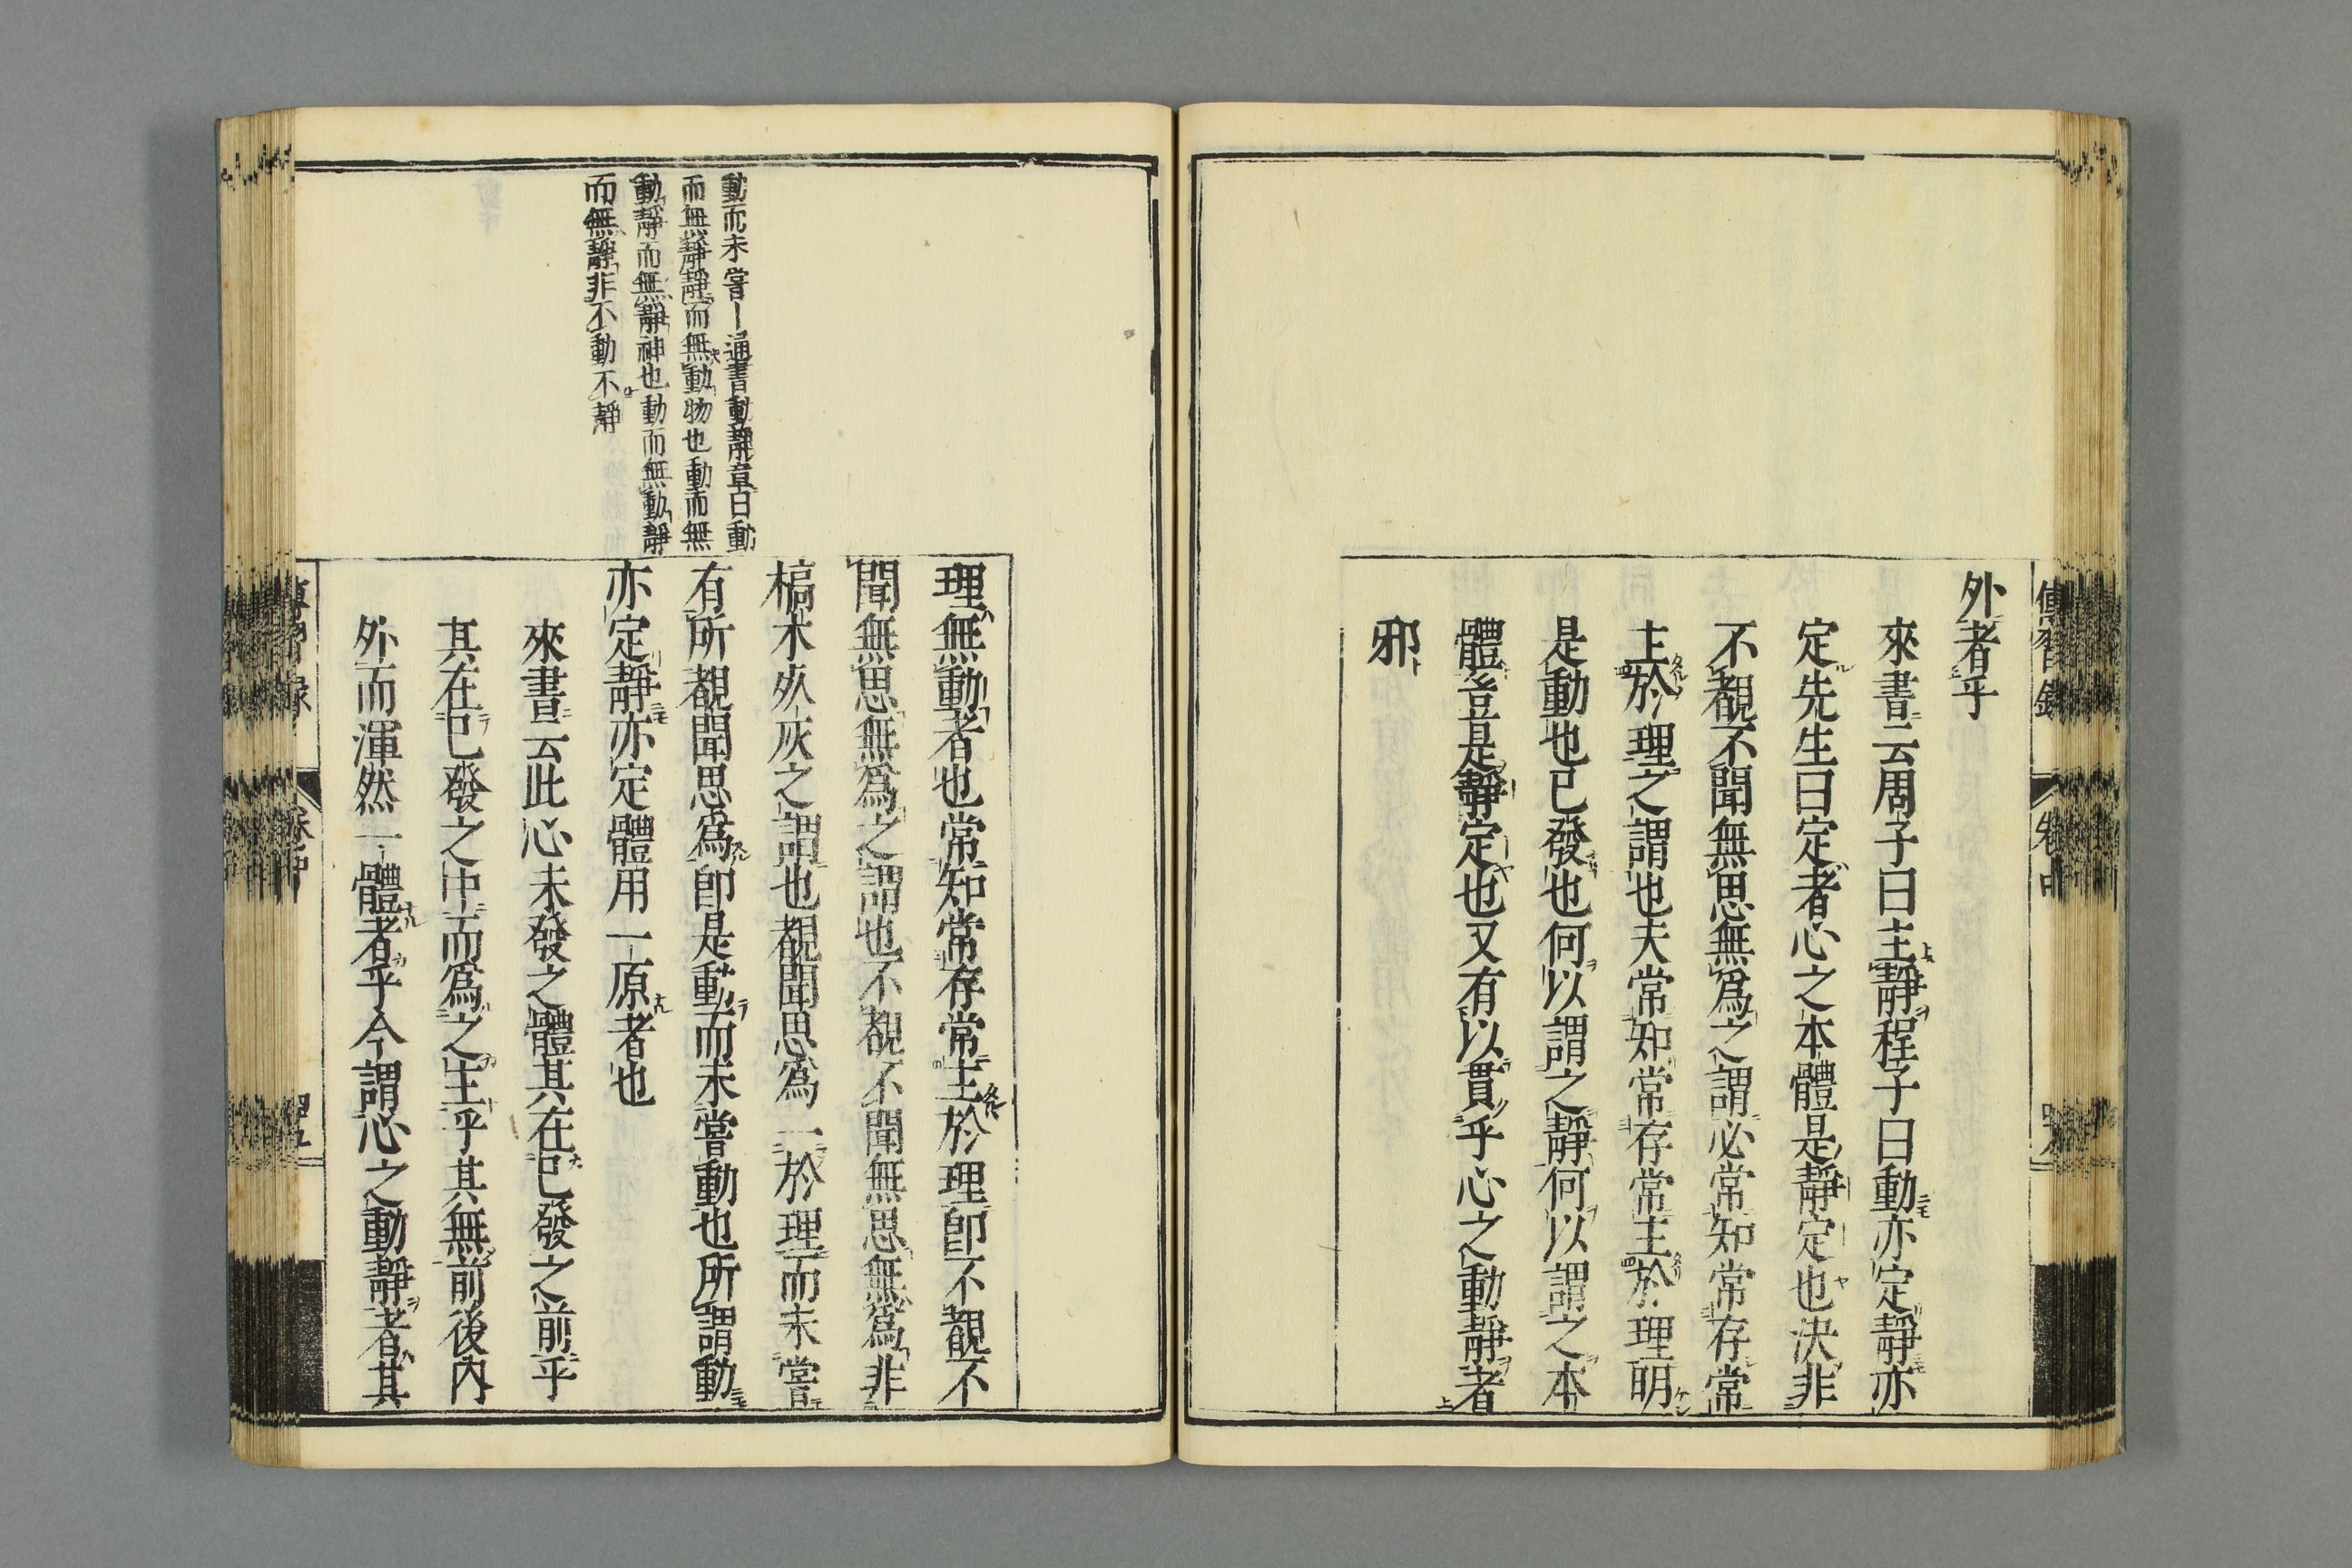 傳習錄
卷中
外者乎
來書云周子曰主靜程子曰動亦定靜亦
定先生曰定者心之本體是靜定也決非
不覩不聞無思無爲之謂必常知常存常
主於理之謂也夫常知常存常主於理明
是動也已發也何以謂之靜何以謂之本
體豈是靜定也又有以貫乎心之動靜者
邪
動而未嘗丨通書動靜章曰動
而無靜靜而無動物也動而無
動靜而無靜神也動而無動靜
而無靜非不動不靜
理無動者也常知常存常主於理卽不覩不
聞無思無爲之謂也不覩不聞無思無爲非
槁木死灰之謂也覩聞思爲一於理而未嘗
有所覩聞思爲卽是動而未嘗動也所謂動
亦定靜亦定體用一原者也
來書云此心未發之體其在已發之前乎
其在已發之中而爲之主乎其無前後內
外而渾然一體者乎今謂心之動靜者其